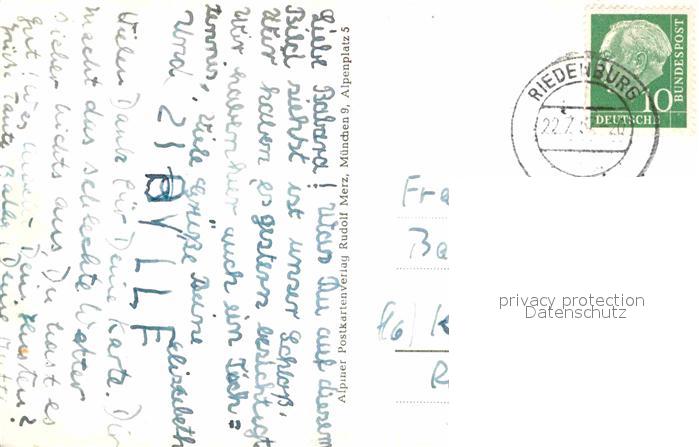 Liebe Babara! Was Du auf diesem
Bild siehst ist unser Schloß.
Wir haben es gestern besichtigt.
Wir haben hier auch ein Tisch=
tennis. Viele Grüße Deine
Elisabeth
Und 21
Vielen Dank für Deine Karte. Dir
macht das schlechte Wetter
sicher nichts aus. Du hast es
gut! Was macht Dein Husten?
Tante
Alpiner Postkartenverlag Rudolf Merz, München 9, Alpenplatz 5
RIEDENBURG
22.7.
DEUTSCHE
BUNDESPOST
10
Fra
Ba
R
privacy protection
Datenschutz